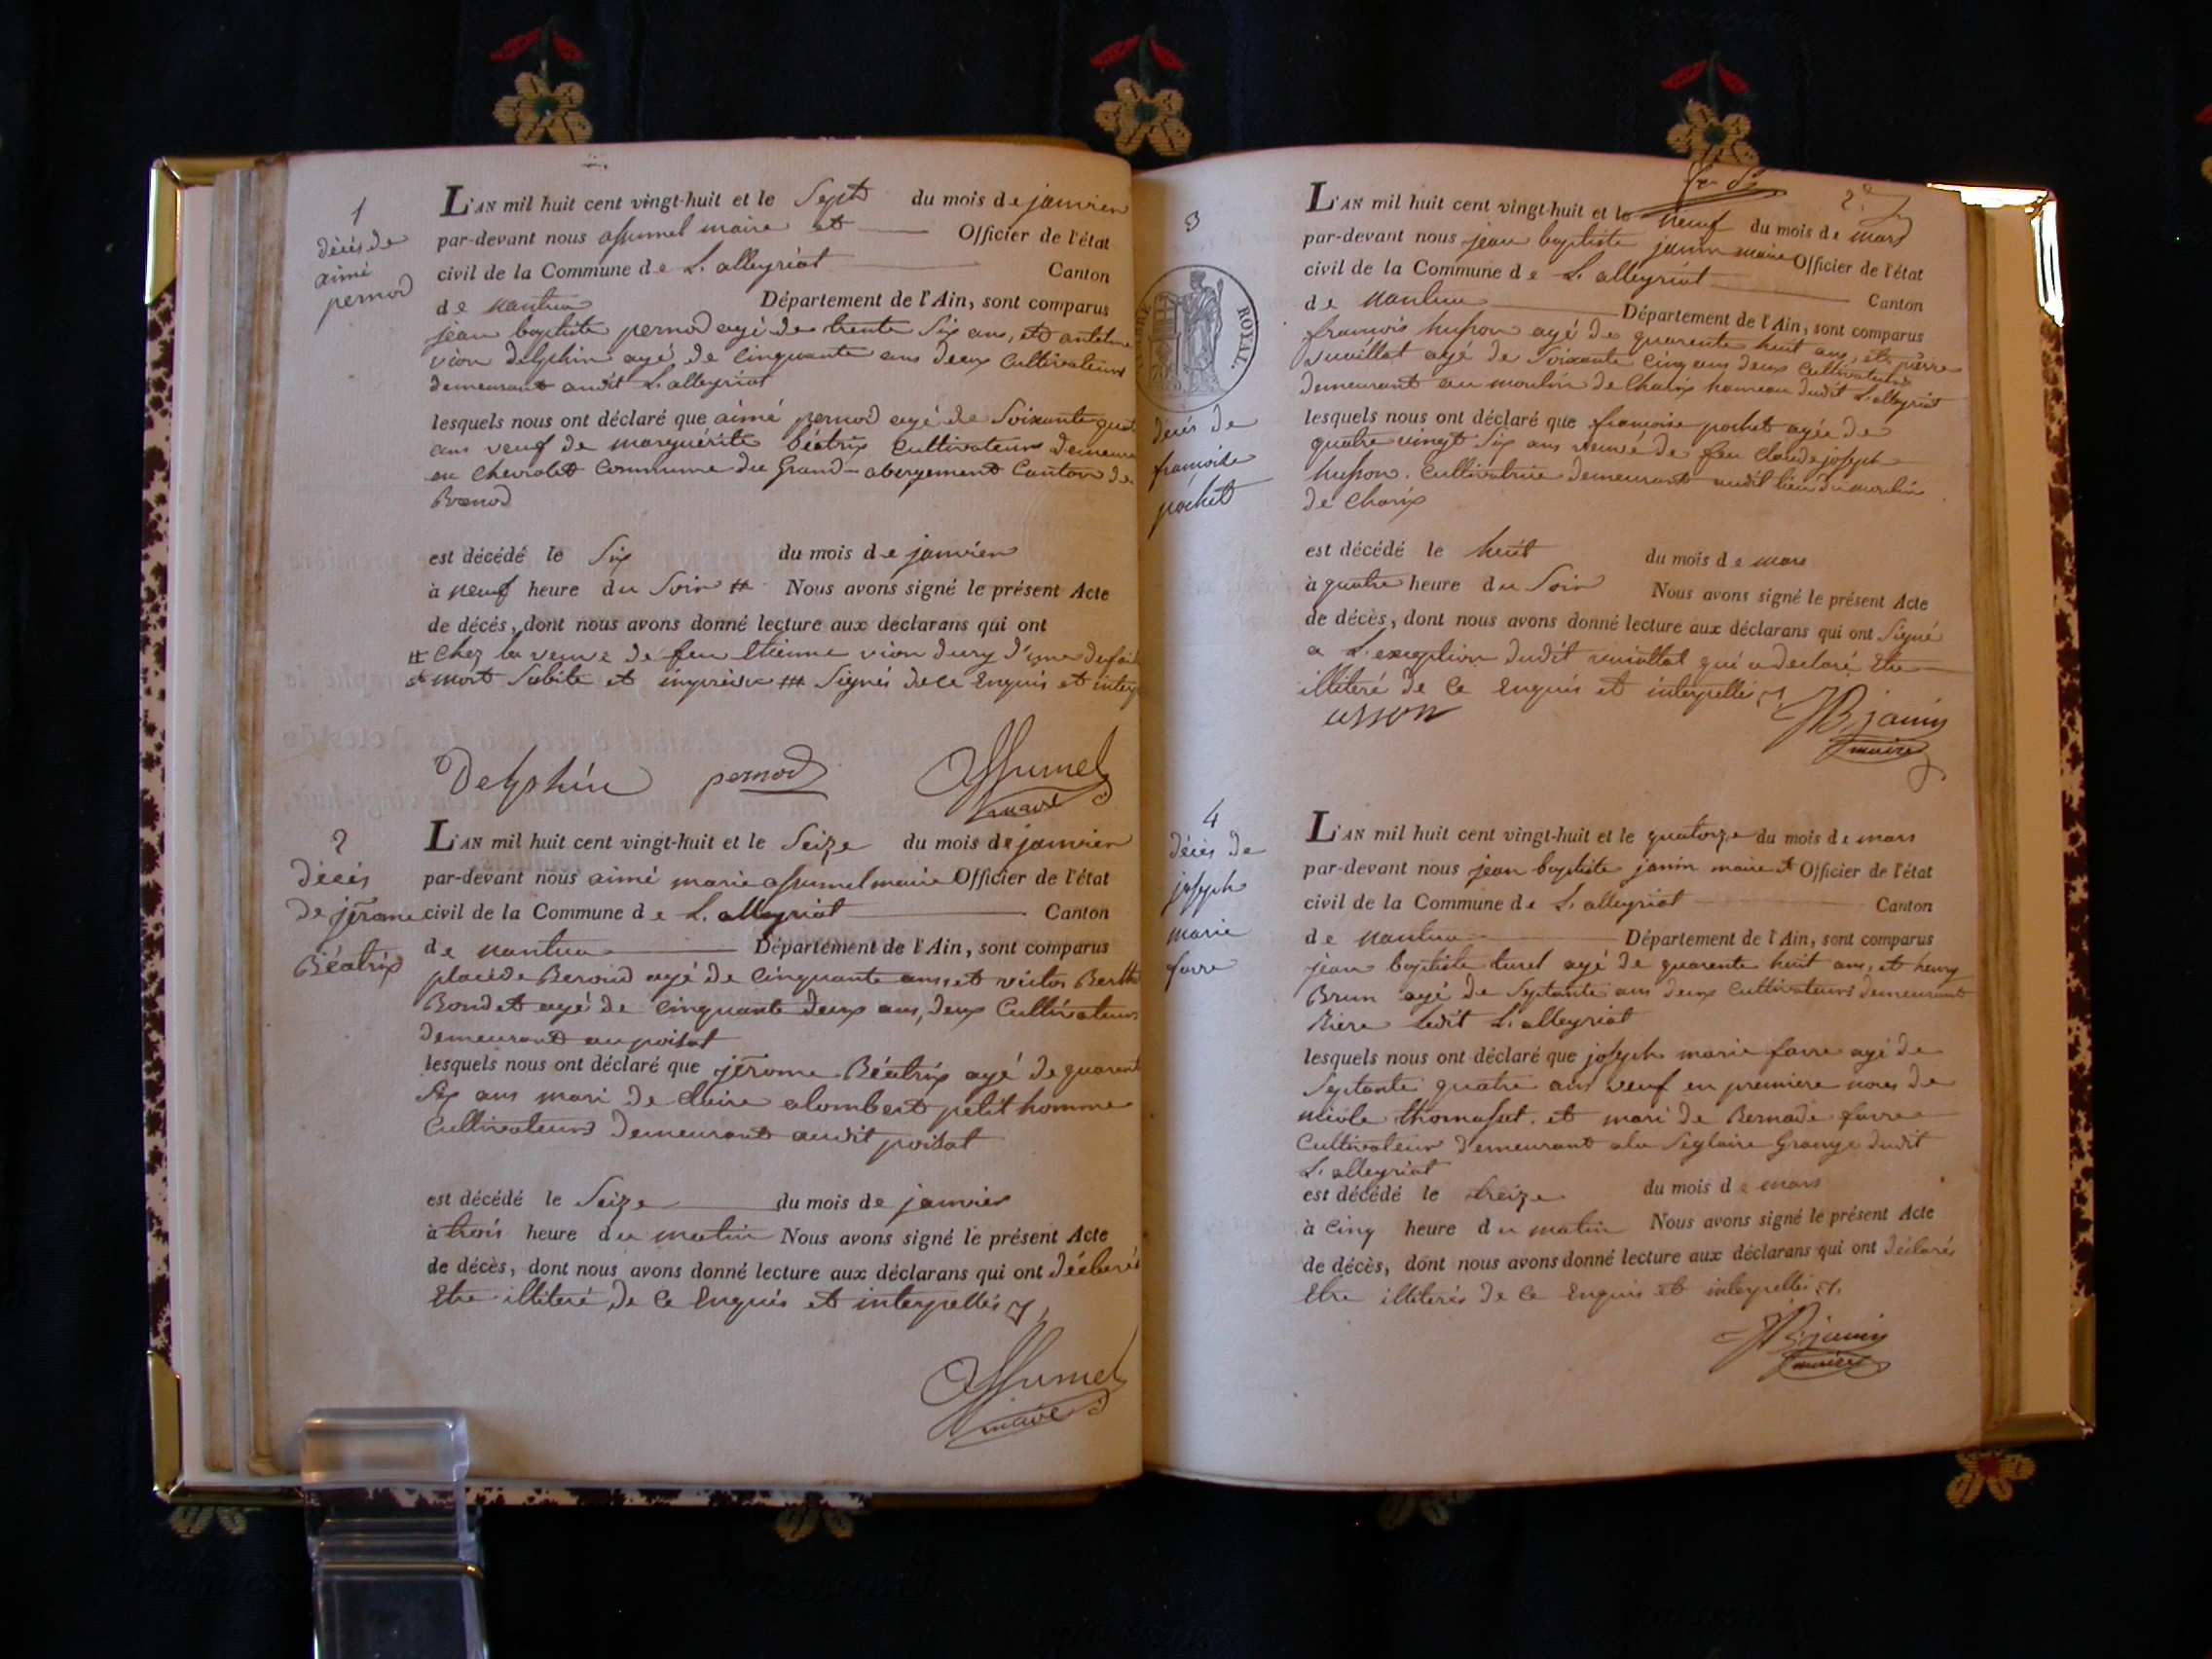 1
décès de
aimé
pernod
L'AN mil huit cent vingt-huit et le Sept du mois de janvier
par-devant nous assumel maire et Officier de l'état
civil de la Commune de L. alleyriat Canton
de nantua Département de l'Ain, sont comparus
jean baptiste pernod agé de trente Six ans, et antelme
vion delphin agé de Cinquante ans deux Cultivateurs
demeurant audit L. alleyriat
lesquels nous ont déclaré que aimé pernod agé de Soixante
ans veuf de marguérite béatrix Cultivateur
au Chevrolet Commune du Grand-abergement Canton de
Brenod
est décédé le Six du mois de janvier
à neuf heure du Soir # Nous avons signé le présent Acte
de décés, dont nous avons donné lecture aux déclarans qui ont
# Chez la veuve de feu Etienne vion dury d'une
mort Subite et imprévue ### Signés de ce Enquis et
Delphin pernod Assumel
maire
2
Décés
De jérome
Béatrix
L'AN mil huit cent vingt-huit et le Seize du mois de janvier
par-devant nous aimé marie assumel maire Officier de l'état
civil de la Commune de L. alleyriat Canton
de nantua Département de l'Ain, sont comparus
placide Beroud agé de Cinquante ans et victor
Bondet agé de Cinquante deux ans, deux Cultivateurs
demeurant au poisat
lesquels nous ont déclaré que jérome Béatrix agé de quarante
Six ans mari de claire alombert petit homme
Cultivateur Demeurant audit poisat
est décédé le Seize du mois de janvier
à trois heure du matin Nous avons signé le présent Acte
de décès, dont nous avons donné lecture aux déclarans qui ont déclaré
Etre illiteré de Ce Enquis et interpellés
Assumel
maire
2e
3
TIMBRE ROYAL.
décés de
francoise
pochet
L'AN mil huit cent vingt-huit et le neuf du mois de mars
par-devant nous jean baptiste janin maire Officier de l'état
civil de la Commune de L. alleyriat Canton
de nantua Département de l'Ain, sont comparus
francois husson agé de quarente huit ans, et pierre
agé de Soixante Cinq ans deux Cultivateurs
demeurant au moulin de Charix hameau dudit L. alleyriat
lesquels nous ont déclaré que francoise pochet agée de
quatre vingt Six ans veuve de feu Claude joseph
husson. Cultivatrice demeurant audit lieu du moulin
de Charix
est décédé le huit du mois de mars
à quatre heure du Soir Nous avons signé le présent Acte
de décès, dont nous avons donné lecture aux déclarans qui ont Signé
a L'exception dudit qui a declaré Etre
illiteré de Ce Enquis et interpellé
usson JB janin
maire
4
décés de
joseph
marie
favre
L'AN mil huit cent vingt-huit et le quatorze du mois de mars
par-devant nous jean baptiste janin maire et Officier de l'état
civil de la Commune de L. alleyriat Canton
de nantua Département de l'Ain, sont comparus
jean baptiste turel agé de quarente huit ans, et henry
Brun agé de Septante ans deux Cultivateurs demeurant
Riere ledit L. alleyriat
lesquels nous ont déclaré que joseph marie favre agé de
Septante quatre ans veuf en premiere noces de
nicole thomasset. et mari de Bernade favre
Cultivateur demeurant a la Grange dudit
L. alleyriat
est décédé le treize du mois de mars
à Cinq heure du matin Nous avons signé le présent Acte
de décès, dont nous avons donné lecture aux déclarans qui ont déclarés
Etre illiterés de Ce Enquis et interpellés
JB janin
maire